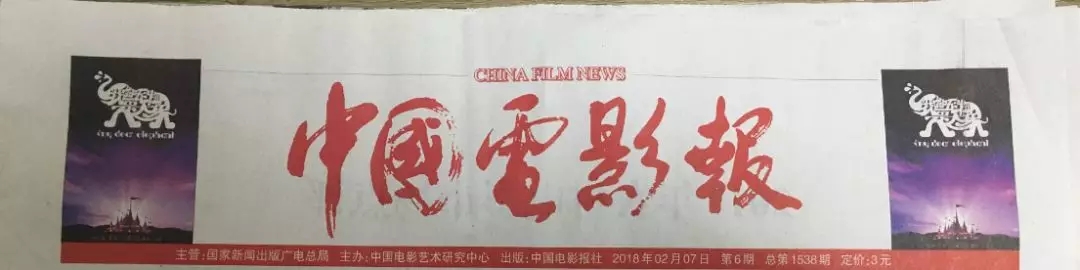 CHINA FILM NEWS
中國電影報
my dear elephant
my dear elephant
主管:国家新闻出版广电总局 主办:中国电影艺术研究中心 出版:中国电影报社 2018年02月07日 第6期 总第1538期 定价:3元